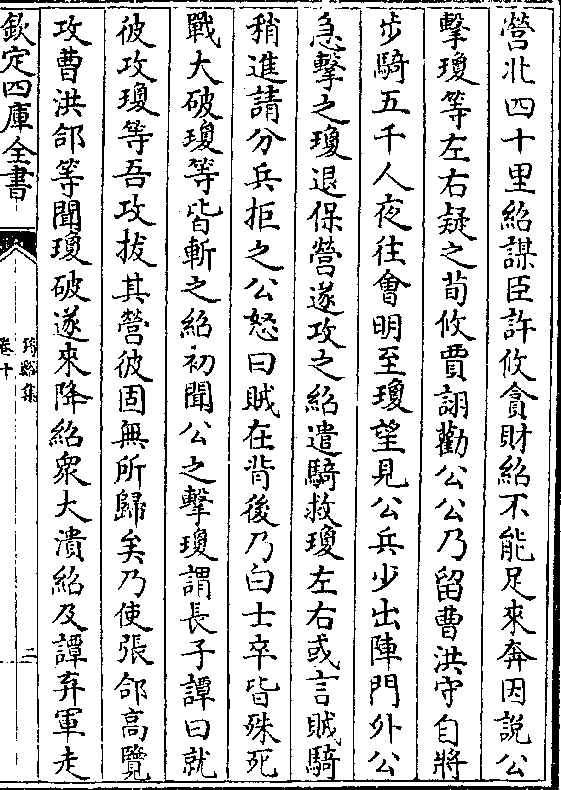 營北四十里紹謀臣許攸貪財紹不能足來奔因說公
擊瓊等左右疑之荀攸賈詡勸公公乃留曹洪守自將
步騎五千人夜往會明至瓊望見公兵少出陣門外公
急擊之瓊退保營遂攻之紹遣騎救瓊左右或言賊騎
稍進請分兵拒之公怒曰賊在背後乃白士卒皆殊死
戰大破瓊等皆斬之紹初聞公之擊瓊謂長子譚曰就
彼攻瓊等吾攻拔其營彼固無所歸矣乃使張郃高覽
攻曹洪郃等聞瓊破遂來降紹衆大潰紹及譚弃軍走
欽定四庫全書
集
卷十
二